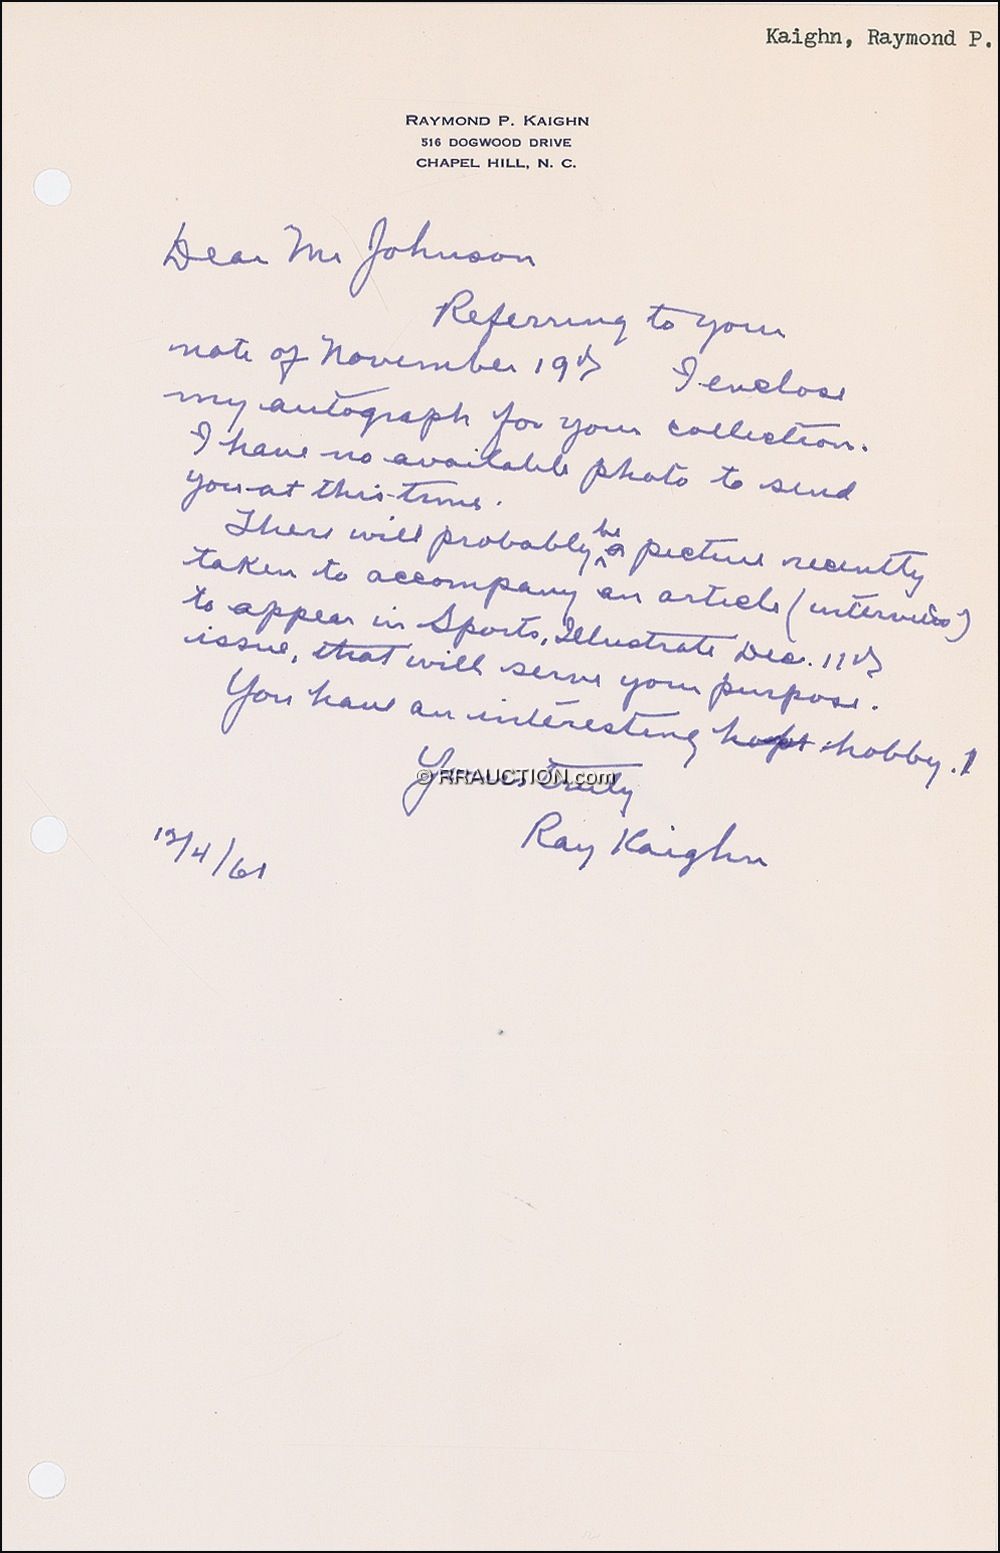 Kaighn, Raymond P.
RAYMOND P. KAIGHN
516 DOGWOOD DRIVE
CHAPEL HILL, N. C.
Dear Mr Johnson
Referring to your
note of November 19th I enclose
my autograph for your collection.
I have no available photo to send
you at this time.
There will probably be a picture recently
taken to accompany an article (interview)
to appear in Sports, Illustrate Dec. 11th
issue, that will serve your purpose.
You have an interesting hobby.
© RRAUCTION.com
Yours truly
Ray Kaighn
12/4/61